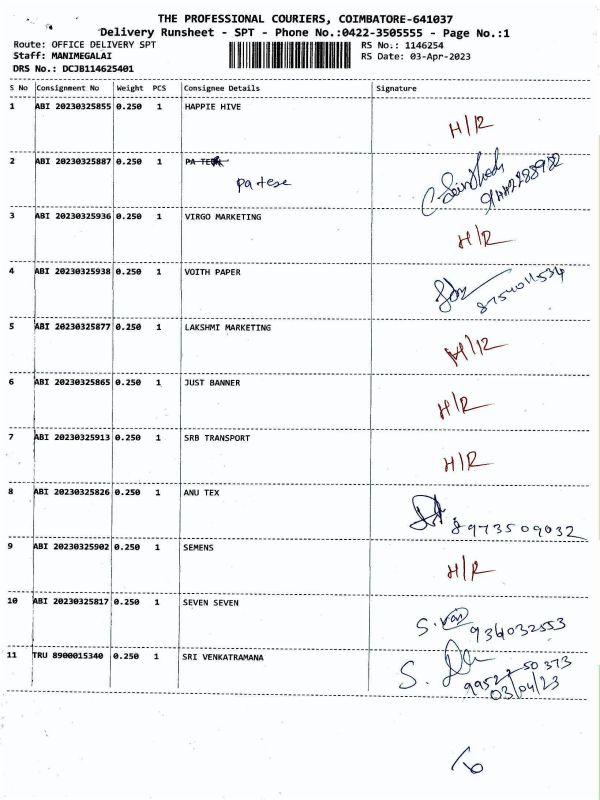 THE PROFESSIONAL COURIERS, COIMBATORE-641037
Delivery Runsheet - SPT - Phone No.:0422-3505555 - Page No.:1
Route: OFFICE DELIVERY SPT RS No.: 1146254
Staff: MANIMEGALAI RS Date: 03-Apr-2023
DRS No.: DCJB114625401
S No Consignment No Weight PCS Consignee Details Signature
1 ABI 20230325855 0.250 1 HAPPIE HIVE
H/R
2 ABI 20230325887 0.250 1
patese
3 ABI 20230325936 0.250 1 VIRGO MARKETING
H/R
4 ABI 20230325938 0.250 1 VOITH PAPER
8754011534
5 ABI 20230325877 0.250 1 LAKSHMI MARKETING
H/R
6 ABI 20230325865 0.250 1 JUST BANNER
H/R
7 ABI 20230325913 0.250 1 SRB TRANSPORT
H/R
8 ABI 20230325826 0.250 1 ANU TEX
8973509032
9 ABI 20230325902 0.250 1 SEMENS
H/R
10 ABI 20230325817 0.250 1 SEVEN SEVEN
S.
936032553
11 TRU 8900015340 0.250 1 SRI VENKATRAMANA
S.
03/04/23